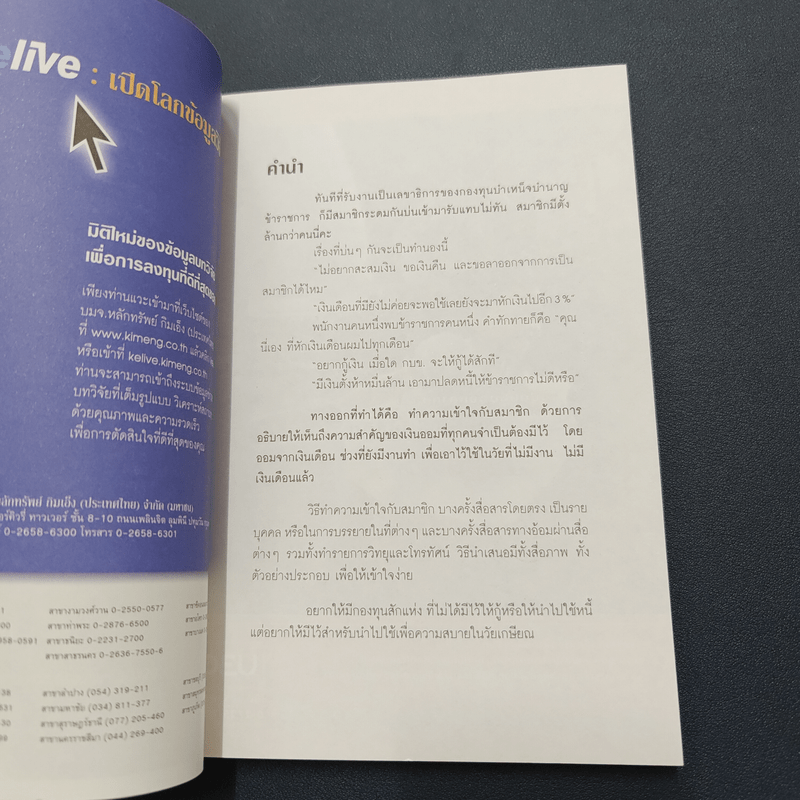 elive : เปิดโลกข้อมูล
มิติใหม่ของข้อมูลบทวิจัย
เพื่อการลงทุนที่ดีที่สุด
เพียงท่านแวะเข้ามาที่เว็บไซต์ของ
บมจ.หลักทรัพย์ กิมเอ็ง (ประเทศไทย)
ที่ www.kimeng.co.th แล้วคลิก
หรือเข้าที่ kelive.kimeng.co.th
ท่านจะสามารถเข้าถึงระบบข้อมูล
บทวิจัยที่เต็มรูปแบบ วิเคราะห์
ด้วยคุณภาพและความรวดเร็ว
เพื่อการตัดสินใจที่ดีที่สุดของคุณ
หลักทรัพย์ กิมเอ็ง (ประเทศไทย) จำกัด (มหาชน)
ทาวเวอร์ ชั้น 8-10 ถนนเพลินจิต ลุมพินี ปทุมวัน
0-2658-6300 โทรสาร 0-2658-6301
สาขางามวงศ์วาน 0-2550-0577
สาขาท่าพระ 0-2876-6500
0-2231-2700
สาขาสาธรนคร 0-2636-7550-6
สาขาลำปาง (054) 319-211
สาขามหาชัย (034) 811-377
สาขาสุราษฎร์ธานี (077) 205-460
สาขานครราชสีมา (044) 269-400
คำนำ
ทันทีที่รับงานเป็นเลขาธิการของกองทุนบำเหน็จบำนาญ
ข้าราชการ ก็มีสมาชิกระดมกันบ่นเข้ามารับแทบไม่ทัน สมาชิกมีตั้ง
ล้านกว่าคนนี่คะ
เรื่องที่บ่นๆ กันจะเป็นทำนองนี้
"ไม่อยากสะสมเงิน ขอเงินคืน และขอลาออกจากการเป็น
สมาชิกได้ไหม"
"เงินเดือนที่มียังไม่ค่อยจะพอใช้เลยยังจะมาหักเงินไปอีก 3%"
พนักงานคนหนึ่งพบข้าราชการคนหนึ่ง คำทักทายก็คือ "คุณ
นี่เอง ที่หักเงินเดือนผมไปทุกเดือน"
"อยากกู้เงิน เมื่อใด กบข. จะให้กู้ได้สักที"
"มีเงินตั้งห้าหมื่นล้าน เอามาปลดหนี้ให้ข้าราชการไม่ดีหรือ"
ทางออกที่ทำได้คือ ทำความเข้าใจกับสมาชิก ด้วยการ
อธิบายให้เห็นถึงความสำคัญของเงินออมที่ทุกคนจำเป็นต้องมีไว้ โดย
ออมจากเงินเดือน ช่วงที่ยังมีงานทำ เพื่อเอาไว้ใช้ในวัยที่ไม่มีงาน ไม่มี
เงินเดือนแล้ว
วิธีทำความเข้าใจกับสมาชิก บางครั้งสื่อสารโดยตรง เป็นราย
บุคคล หรือในการบรรยายในที่ต่างๆ และบางครั้งสื่อสารทางอ้อมผ่านสื่อ
ต่างๆ รวมทั้งทำรายการวิทยุและโทรทัศน์ วิธีนำเสนอมีทั้งสื่อภาพ ทั้ง
ตัวอย่างประกอบ เพื่อให้เข้าใจง่าย
อยากให้มีกองทุนสักแห่ง ที่ไม่ได้มีไว้ให้กู้หรือให้นำไปใช้หนี้
แต่อยากให้มีไว้สำหรับนำไปใช้เพื่อความสบายในวัยเกษียณ